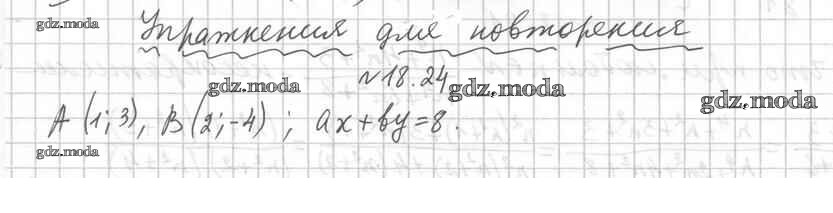 gdz.moda
Упражнения для повторения
№18.24
gdz.moda gdz.moda gdz.moda
A (1; 3), B (2; -4) ; ax + by = 8.
gdz.moda